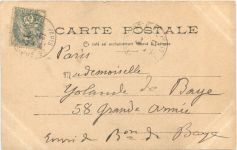 CARTE POSTALE
Ce côté est exclusivement réservé à l'adresse
Paris
Mademoiselle
Yolande de Baye
58 Grande Armée
Envoi de Bon de Baye